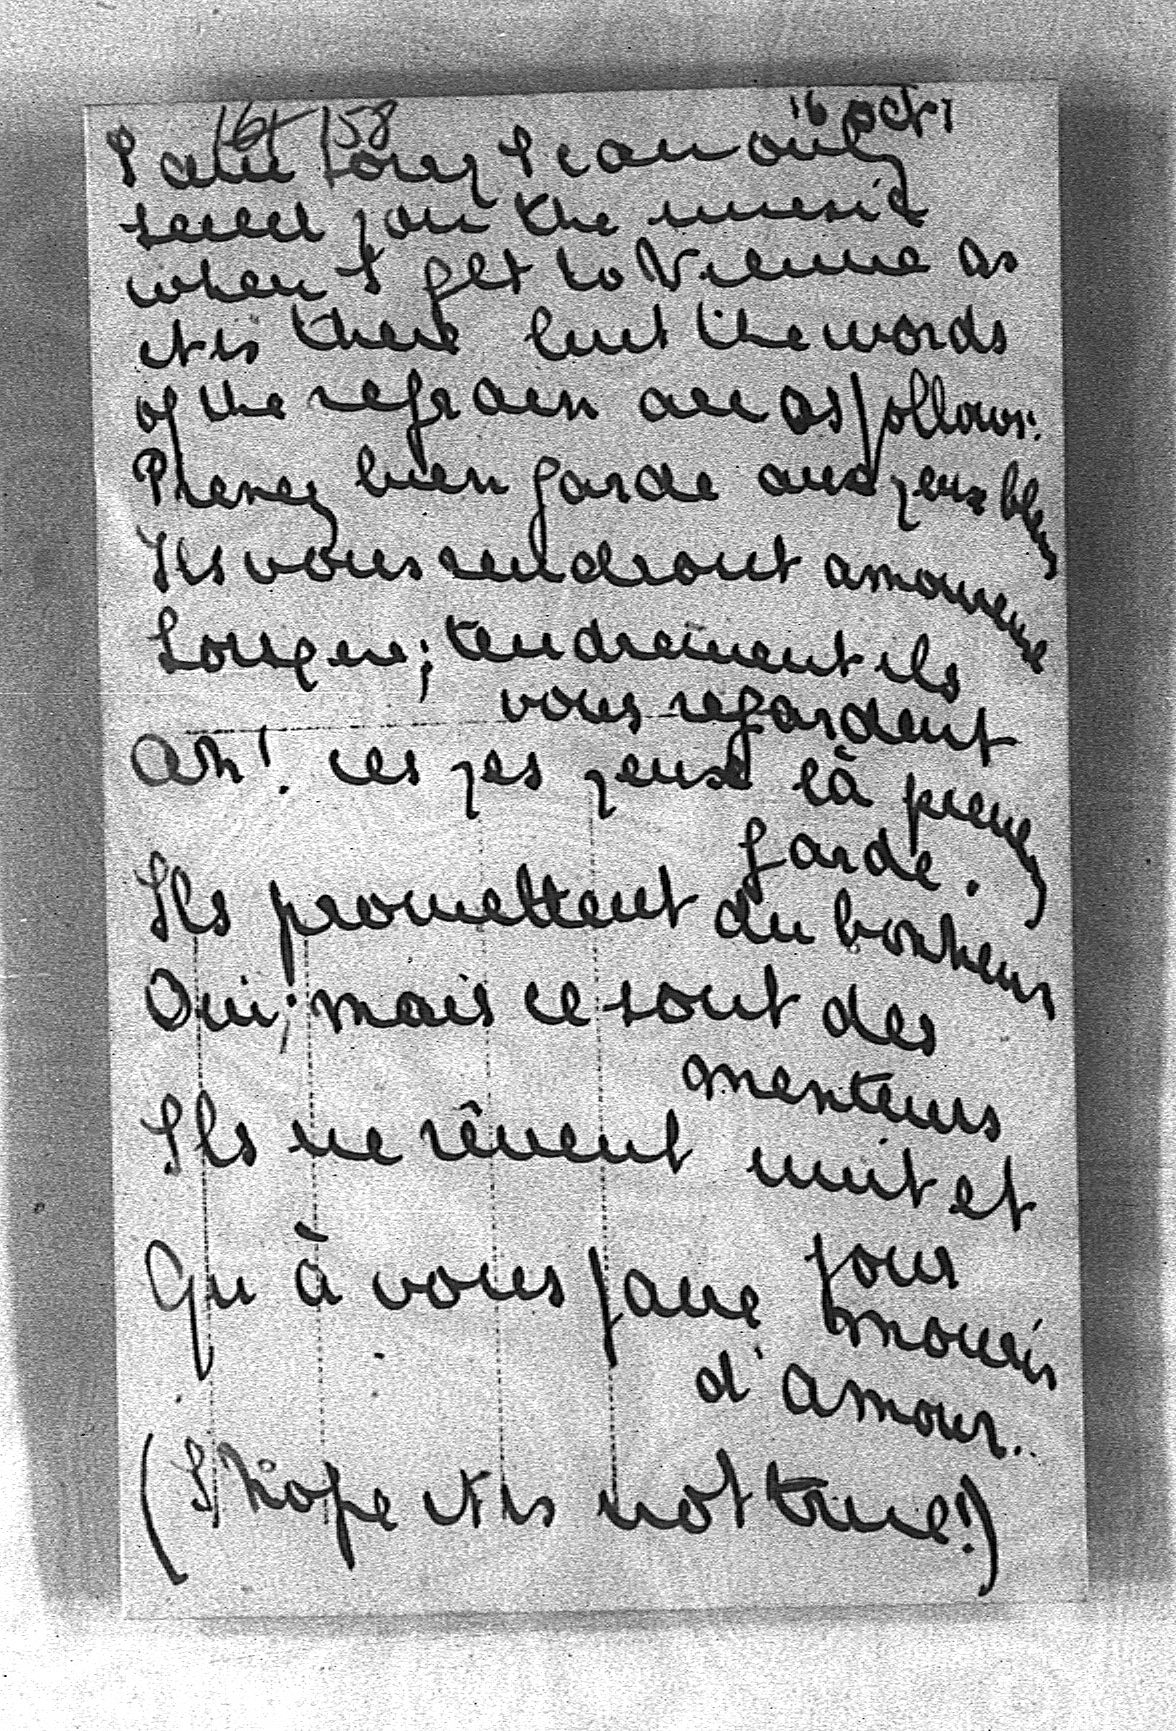 16+ 158 16 oct 1
I am sorry I can only
send you the music
when I get to Vienne as
it is there but the words
of the refrain are as follows:
Prenez bien garde aux yeux bleus
Ils vous rendront amoureux
Lorsque; tendrement ils
vous regardent
Ah! ces yes yeux là prenez
garde.
Ils promettent du bonheur
Oui; mais ce sont des
menteurs
Ils ne rêvent nuit et
jour
Qu à vous faire mourir
d'amour..
(I hope it is not true!)